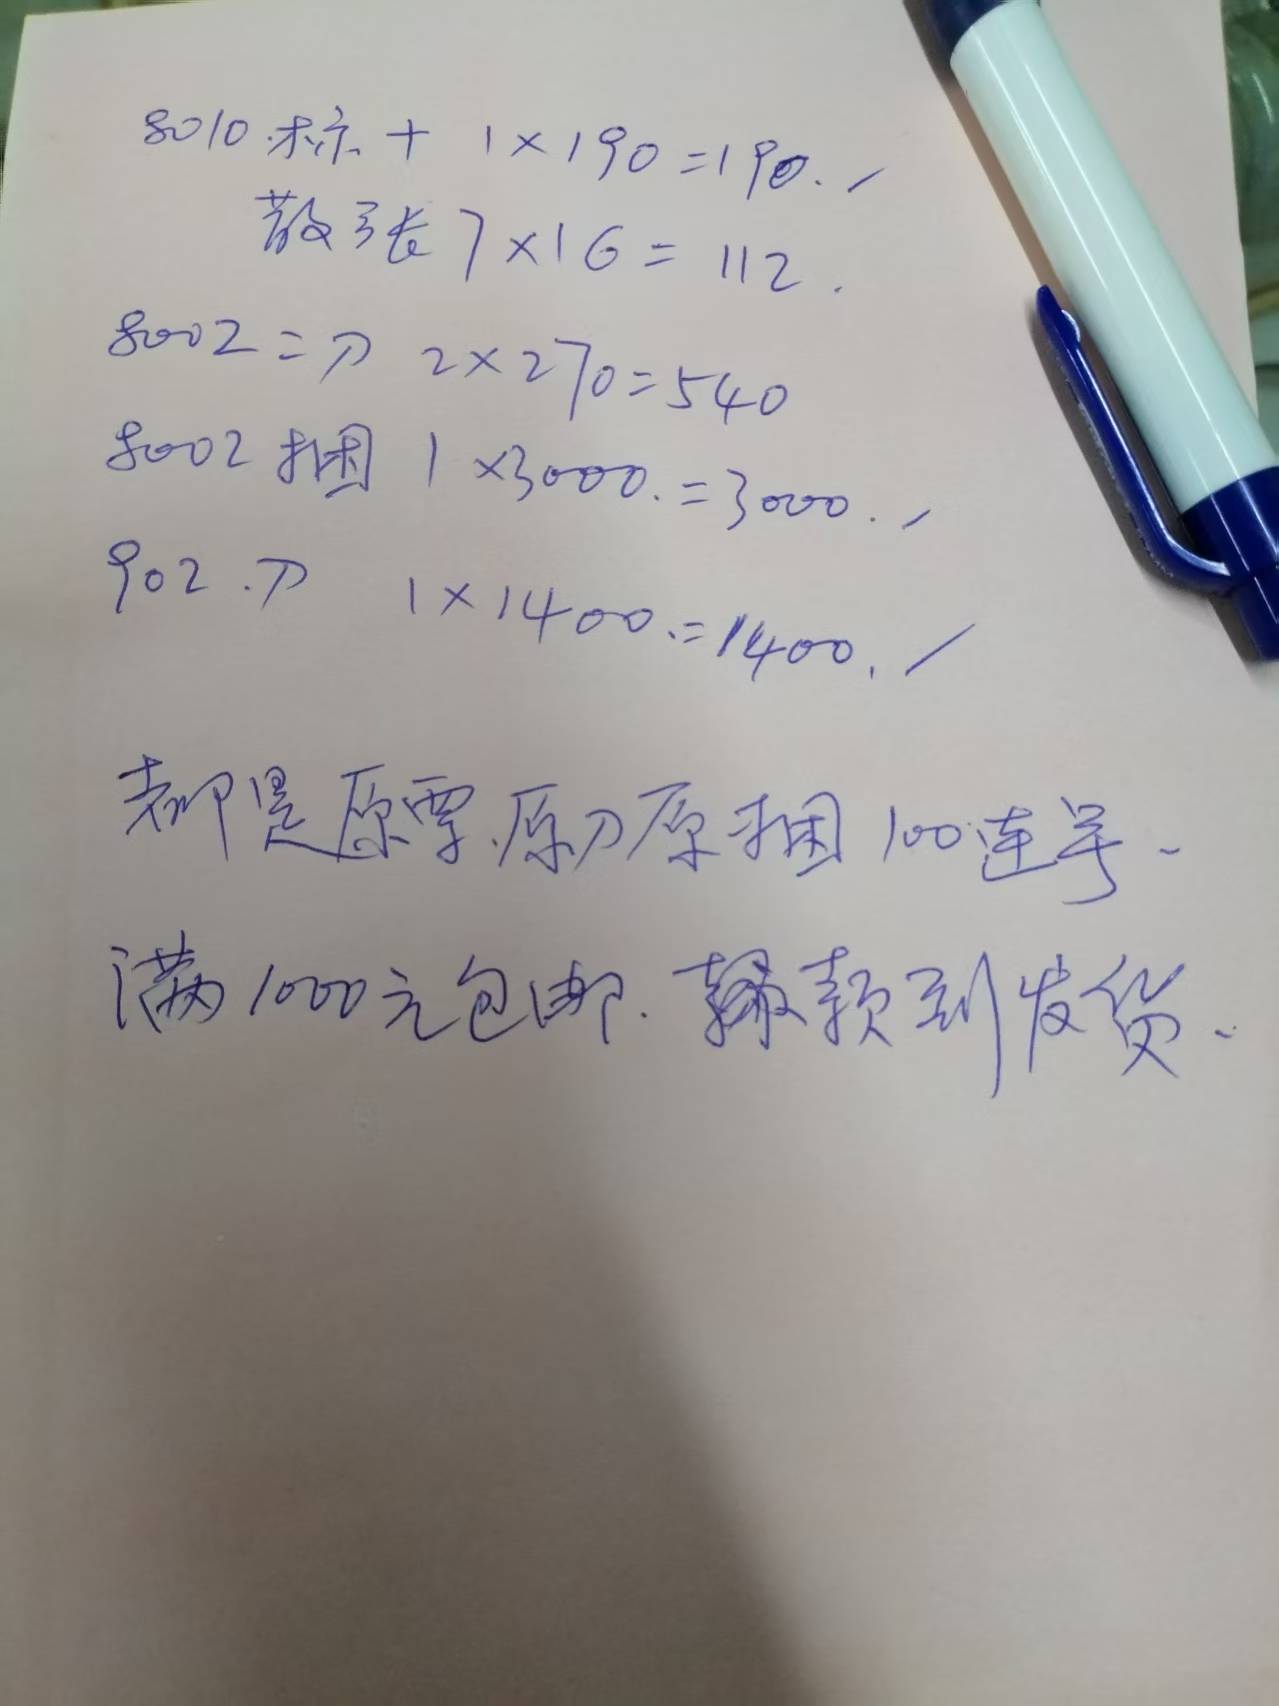 8010标十 1×190=190.
散张7×16=112.
8002二刀 2×270=540
8002捆 1×3000.=3000.
902.刀 1×1400.=1400.
都是原票.原刀原捆100连号.
满1000元包邮.款到发货.